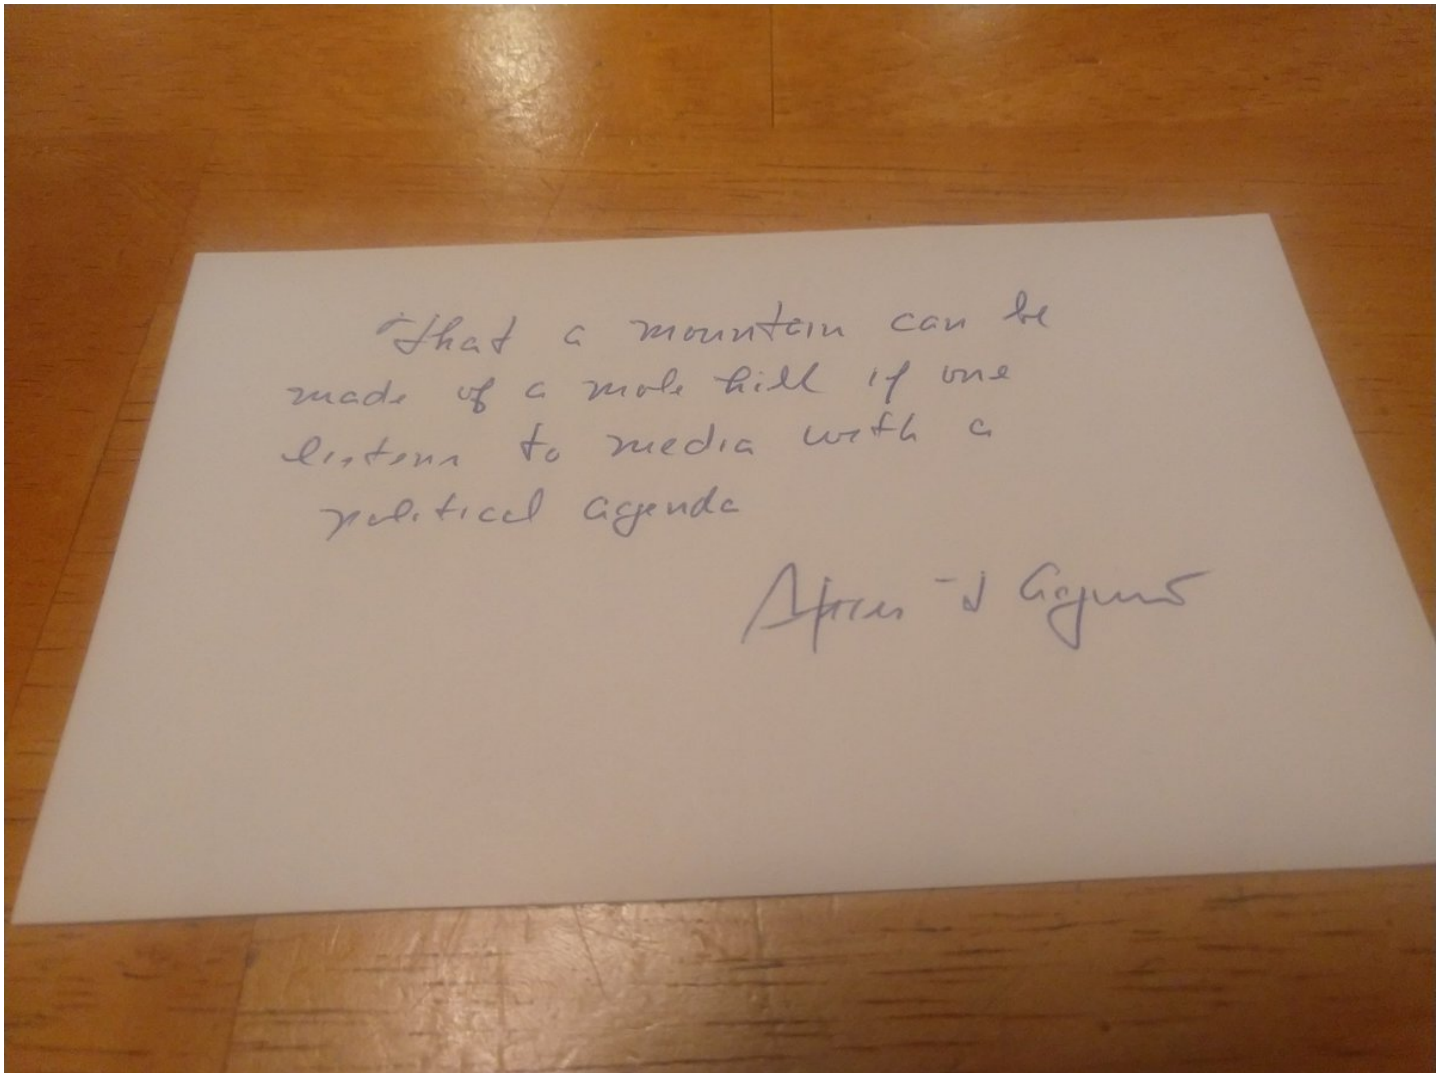 That a mountain can be
made of a mole hill if one
listens to media with a
political agenda
Spiro T Agnew